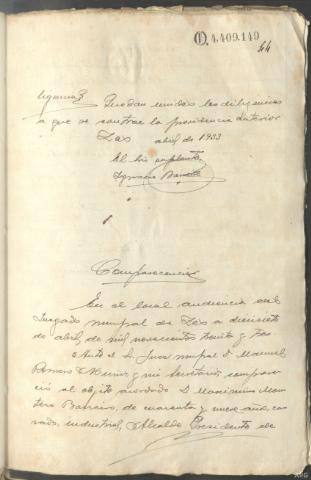 O.4.409.149
44
Quedan unidas las diligencias
a que se contrae la providencia anterior
abril de 1933
Ignacio
Comparecencia
En el local audiencia del
Juzgado municipal de a diecisiete
de abril, de mil novecientos treinta y tres
Ante el Sr. Juez municipal D. Manuel
y mi Secretario, compare-
ció al objeto acordado D. Maximino
de cuarenta y nueve años, ca-
sado, industrial, Alcalde Presidente de